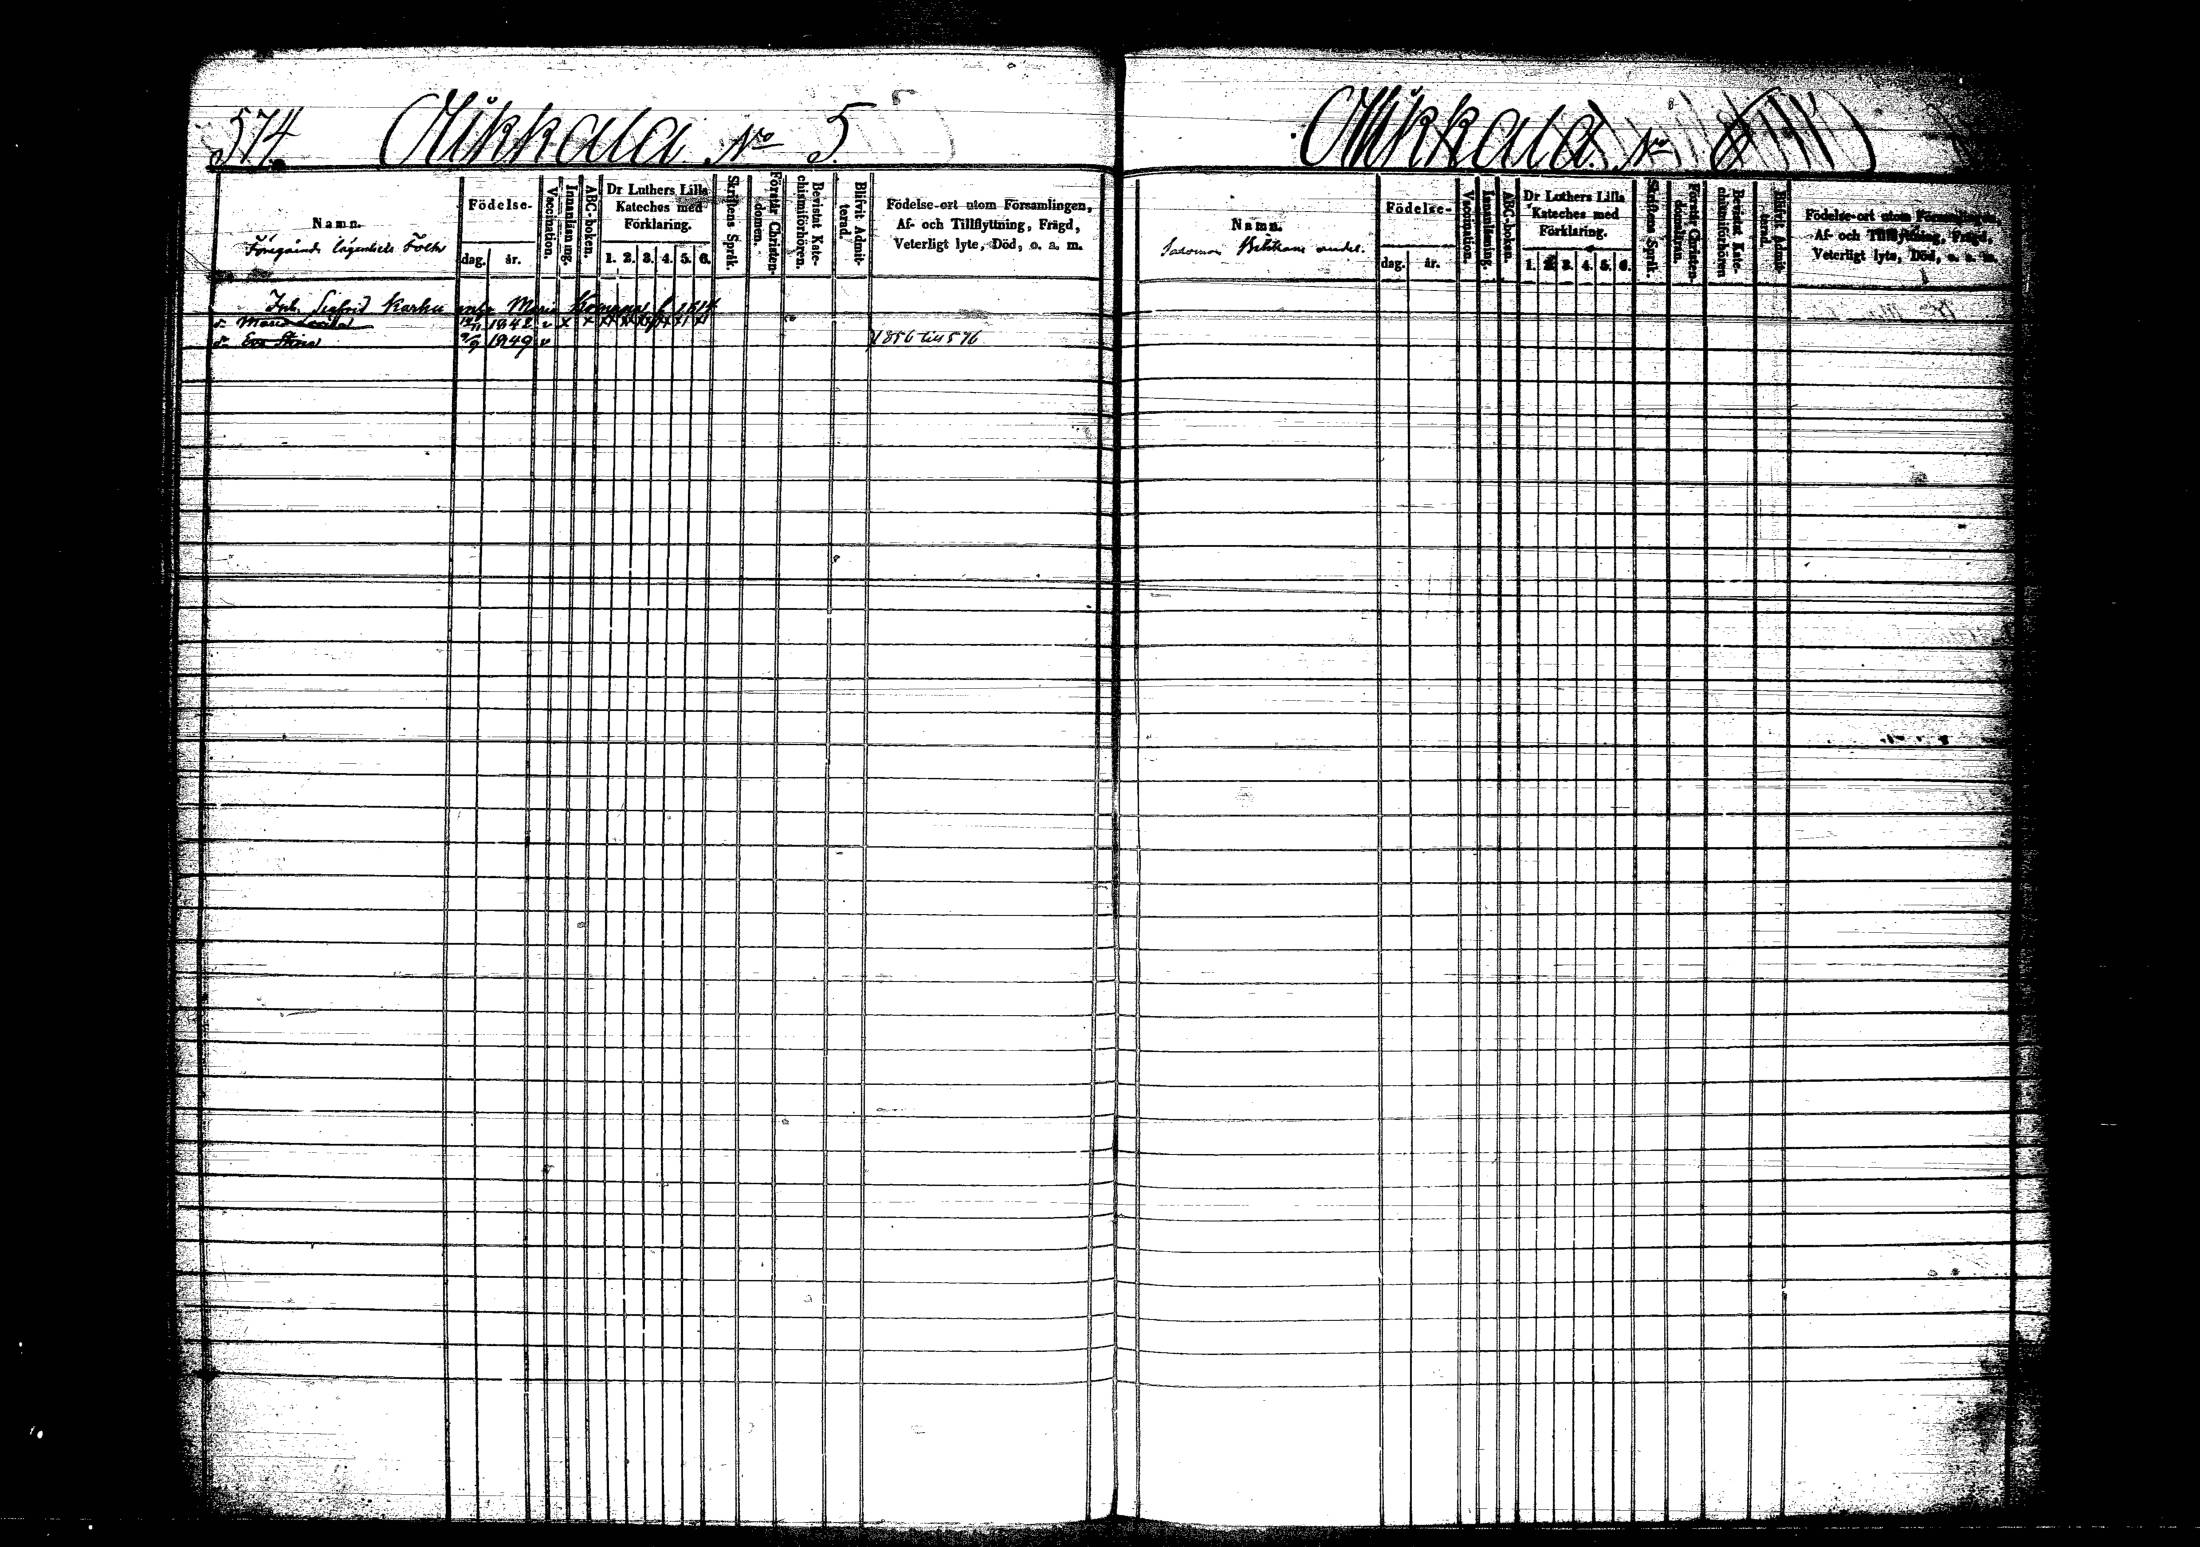 574 Mikkala No 5
Namn.
Föregående lägenhets Folk
Födelse-
dag. år.
Vaccination.
Innanläsning.
ABC-boken.
Dr Luthers Lilla
Kateches med
Förklaring.
1. 2. 3. 4. 5. 6.
Skriftens Språk.
Förstår Christen-
domen.
Bevistat Kate-
chismiförhören.
Blifvit Admit-
terad.
Födelse-ort utom Församlingen,
Af- och Tillflyttning, Frägd,
Veterligt lyte, Död, o. a. m.
Inh. Sigfrid Karhu Maria 1814
d. Maria 1842 v x x x x x x x x
d. Eva Stina 1849 v 1856 till 576
Mikkala No
Namn.
Salomon
Födelse-
dag. år.
Vaccination.
Innanläsning.
ABC-boken.
Dr Luthers Lilla
Kateches med
Förklaring.
1. 2. 3. 4. 5. 6.
Skriftens Språk.
Förstår Christen-
Bevistat Kate-
chismiförhören
Blifvit Admit-
terad.
Födelse-ort utom Församlingen,
Af- och Tillflyttning, Frägd,
Veterligt lyte, Död, o. a. m.